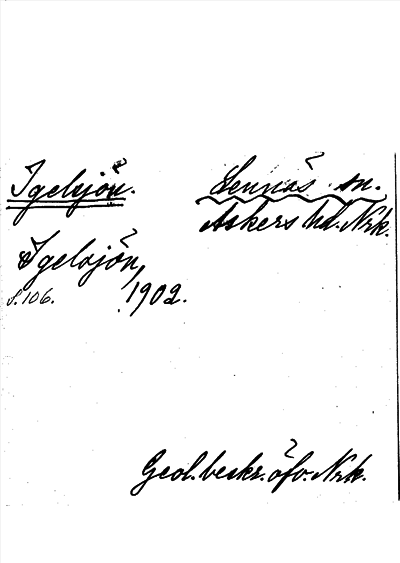 Igelsjön.
Lennäs sn.
Askers hd. Nrk.
Igelsjön,
s. 106. 1902.
Geol. beskr. öfv. Nrk.